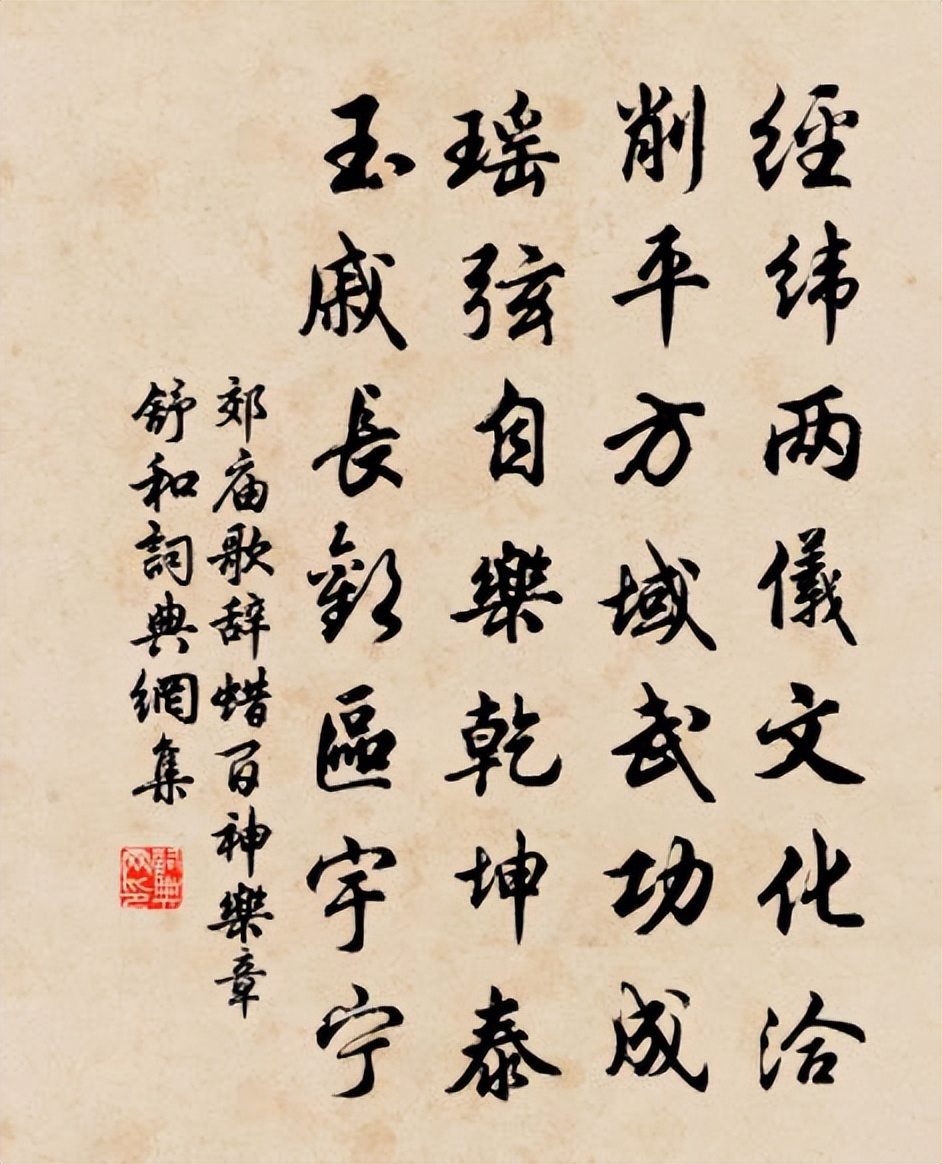 經緯两儀文化洽
削平方域武功成
瑶弦自樂乾坤泰
玉戚長歡區宇宁
郊庙歌辞蜡百神樂章
舒和詞典網集